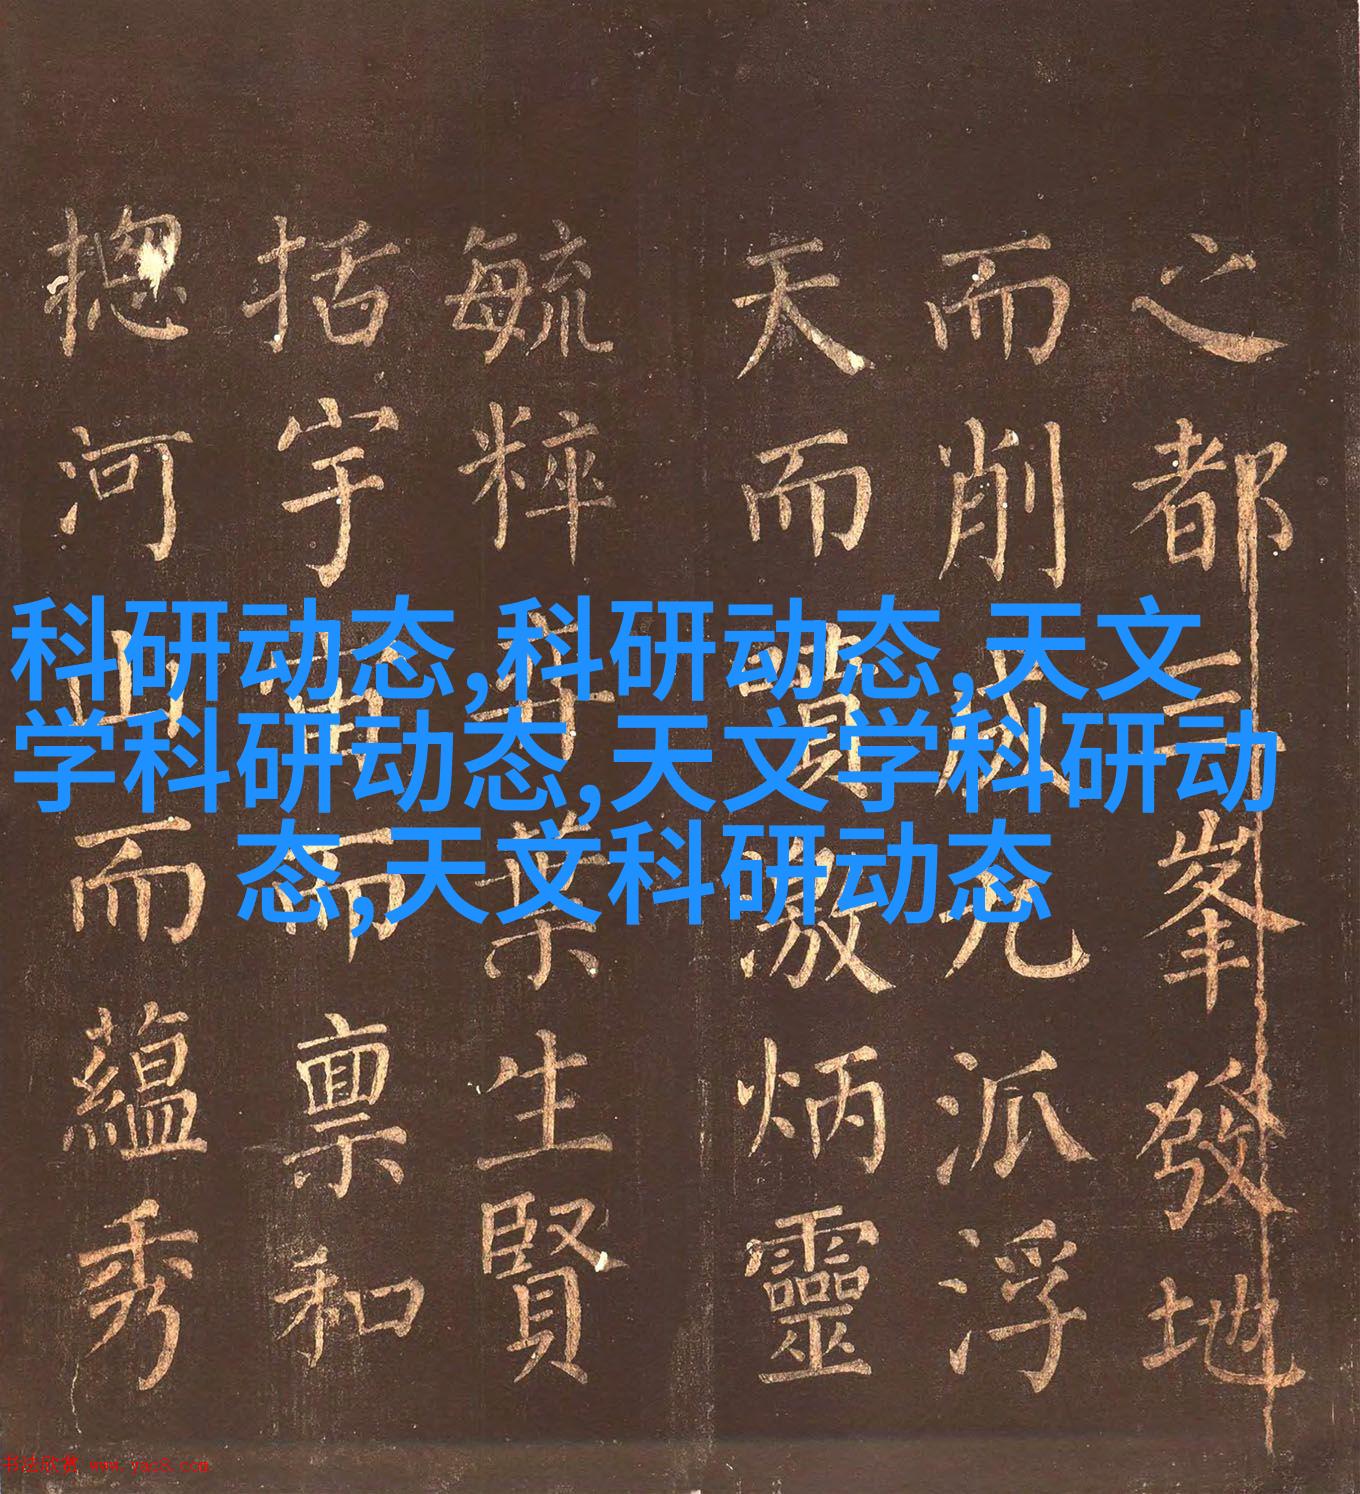 之都三峯發地
而削成九派浮
天而噴激炳靈
毓粹弈葉生賢
括宇宙而稟和
揔河山而蘊秀
科研动态,科研动态,天文
学科研动态,天文学科研动
态,天文科研动态
书法欣赏 www.yac8.com